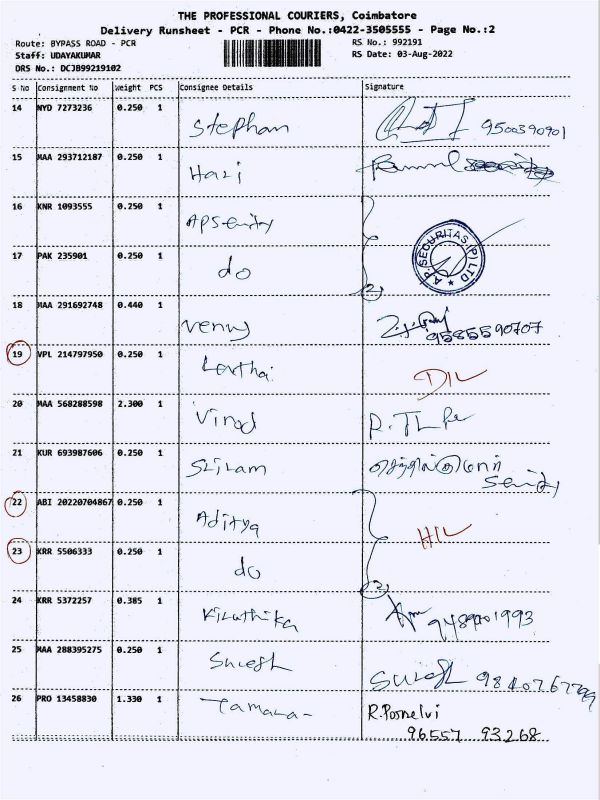 THE PROFESSIONAL COURIERS, Coimbatore
Delivery Runsheet - PCR - Phone No.:0422-3505555 - Page No.:2
Route: BYPASS ROAD - PCR
RS No.: 992191
Staff: UDAYAKUMAR
RS Date: 03-Aug-2022
DRS No.: DCJB99219102
S No Consignment No Weight PCS Consignee Details Signature
14 NYD 7273236 0.250 1 Stephan 9500390901
15 MAA 293712187 0.250 1 Hari
16 KNR 1093555 0.250 1 APSecurity
A.P. SECURITAS (P) LTD
17 PAK 235901 0.250 1 do 2
18 MAA 291692748 0.440 1 Venuy 9585590707
19 VPL 214797950 0.250 1 DIL
20 MAA 568288598 2.300 1 Vinod
21 KUR 693987606 0.250 1 Sriram செந்தில்குமார்
22 ABI 20220704867 0.250 1 Aditya HIL
23 KRR 5506333 0.250 1 do 2
24 KRR 5372257 0.385 1 Kiruthika
25 MAA 288395275 0.250 1 Suresh Suresh
26 PRO 13458830 1.330 1 R.Ponselvi
96557 93268